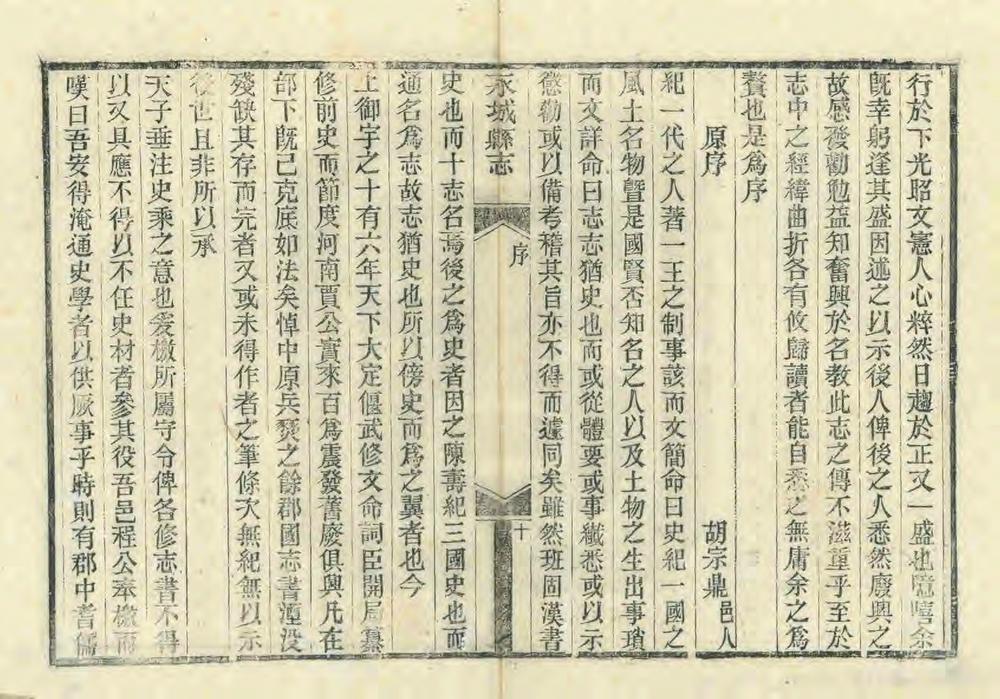 行於下光昭文憲人心粹然日趨於正又一盛也噫嘻余
旣幸躬逢其盛因述之以示後人俾後之人悉然廢興之
故感發勸勉益知奮興於名教此志之傳不滋重乎至於
志中之經緯曲折各有攸歸讀者能自悉之無庸余之爲
贅也是爲序
原序 胡宗鼎邑人
紀一代之人著一王之制事該而文簡命曰史紀一國之
風土名物曁是國賢否知名之人以及土物之生出事瑣
而文詳命曰志志猶史也而或從體要或事纖悉或以示
懲勸或以備考稽其旨亦不得而遽同矣雖然班固漢書
永城縣志 序 十
史也而十志名焉後之爲史者因之陳壽紀三國史也而
通名爲志故志猶史也所以傍史而爲之翼者也今
上御宇之十有六年天下大定偃武修文命詞臣開局纂
修前史而節度河南賈公實來百爲震發舊廢俱興凡在
部下旣已克底如法矣悼中原兵燹之餘郡國志書湮没
殘缺其存而完者又或未得作者之筆條次無紀無以示
後世且非所以承
天子垂注史乘之意也爰檄所屬守令俾各修志書不得
以又具應不得以不任史材者參其役吾邑程公奉檄而
嘆曰吾安得淹通史學者以供厥事乎時則有郡中耆儒